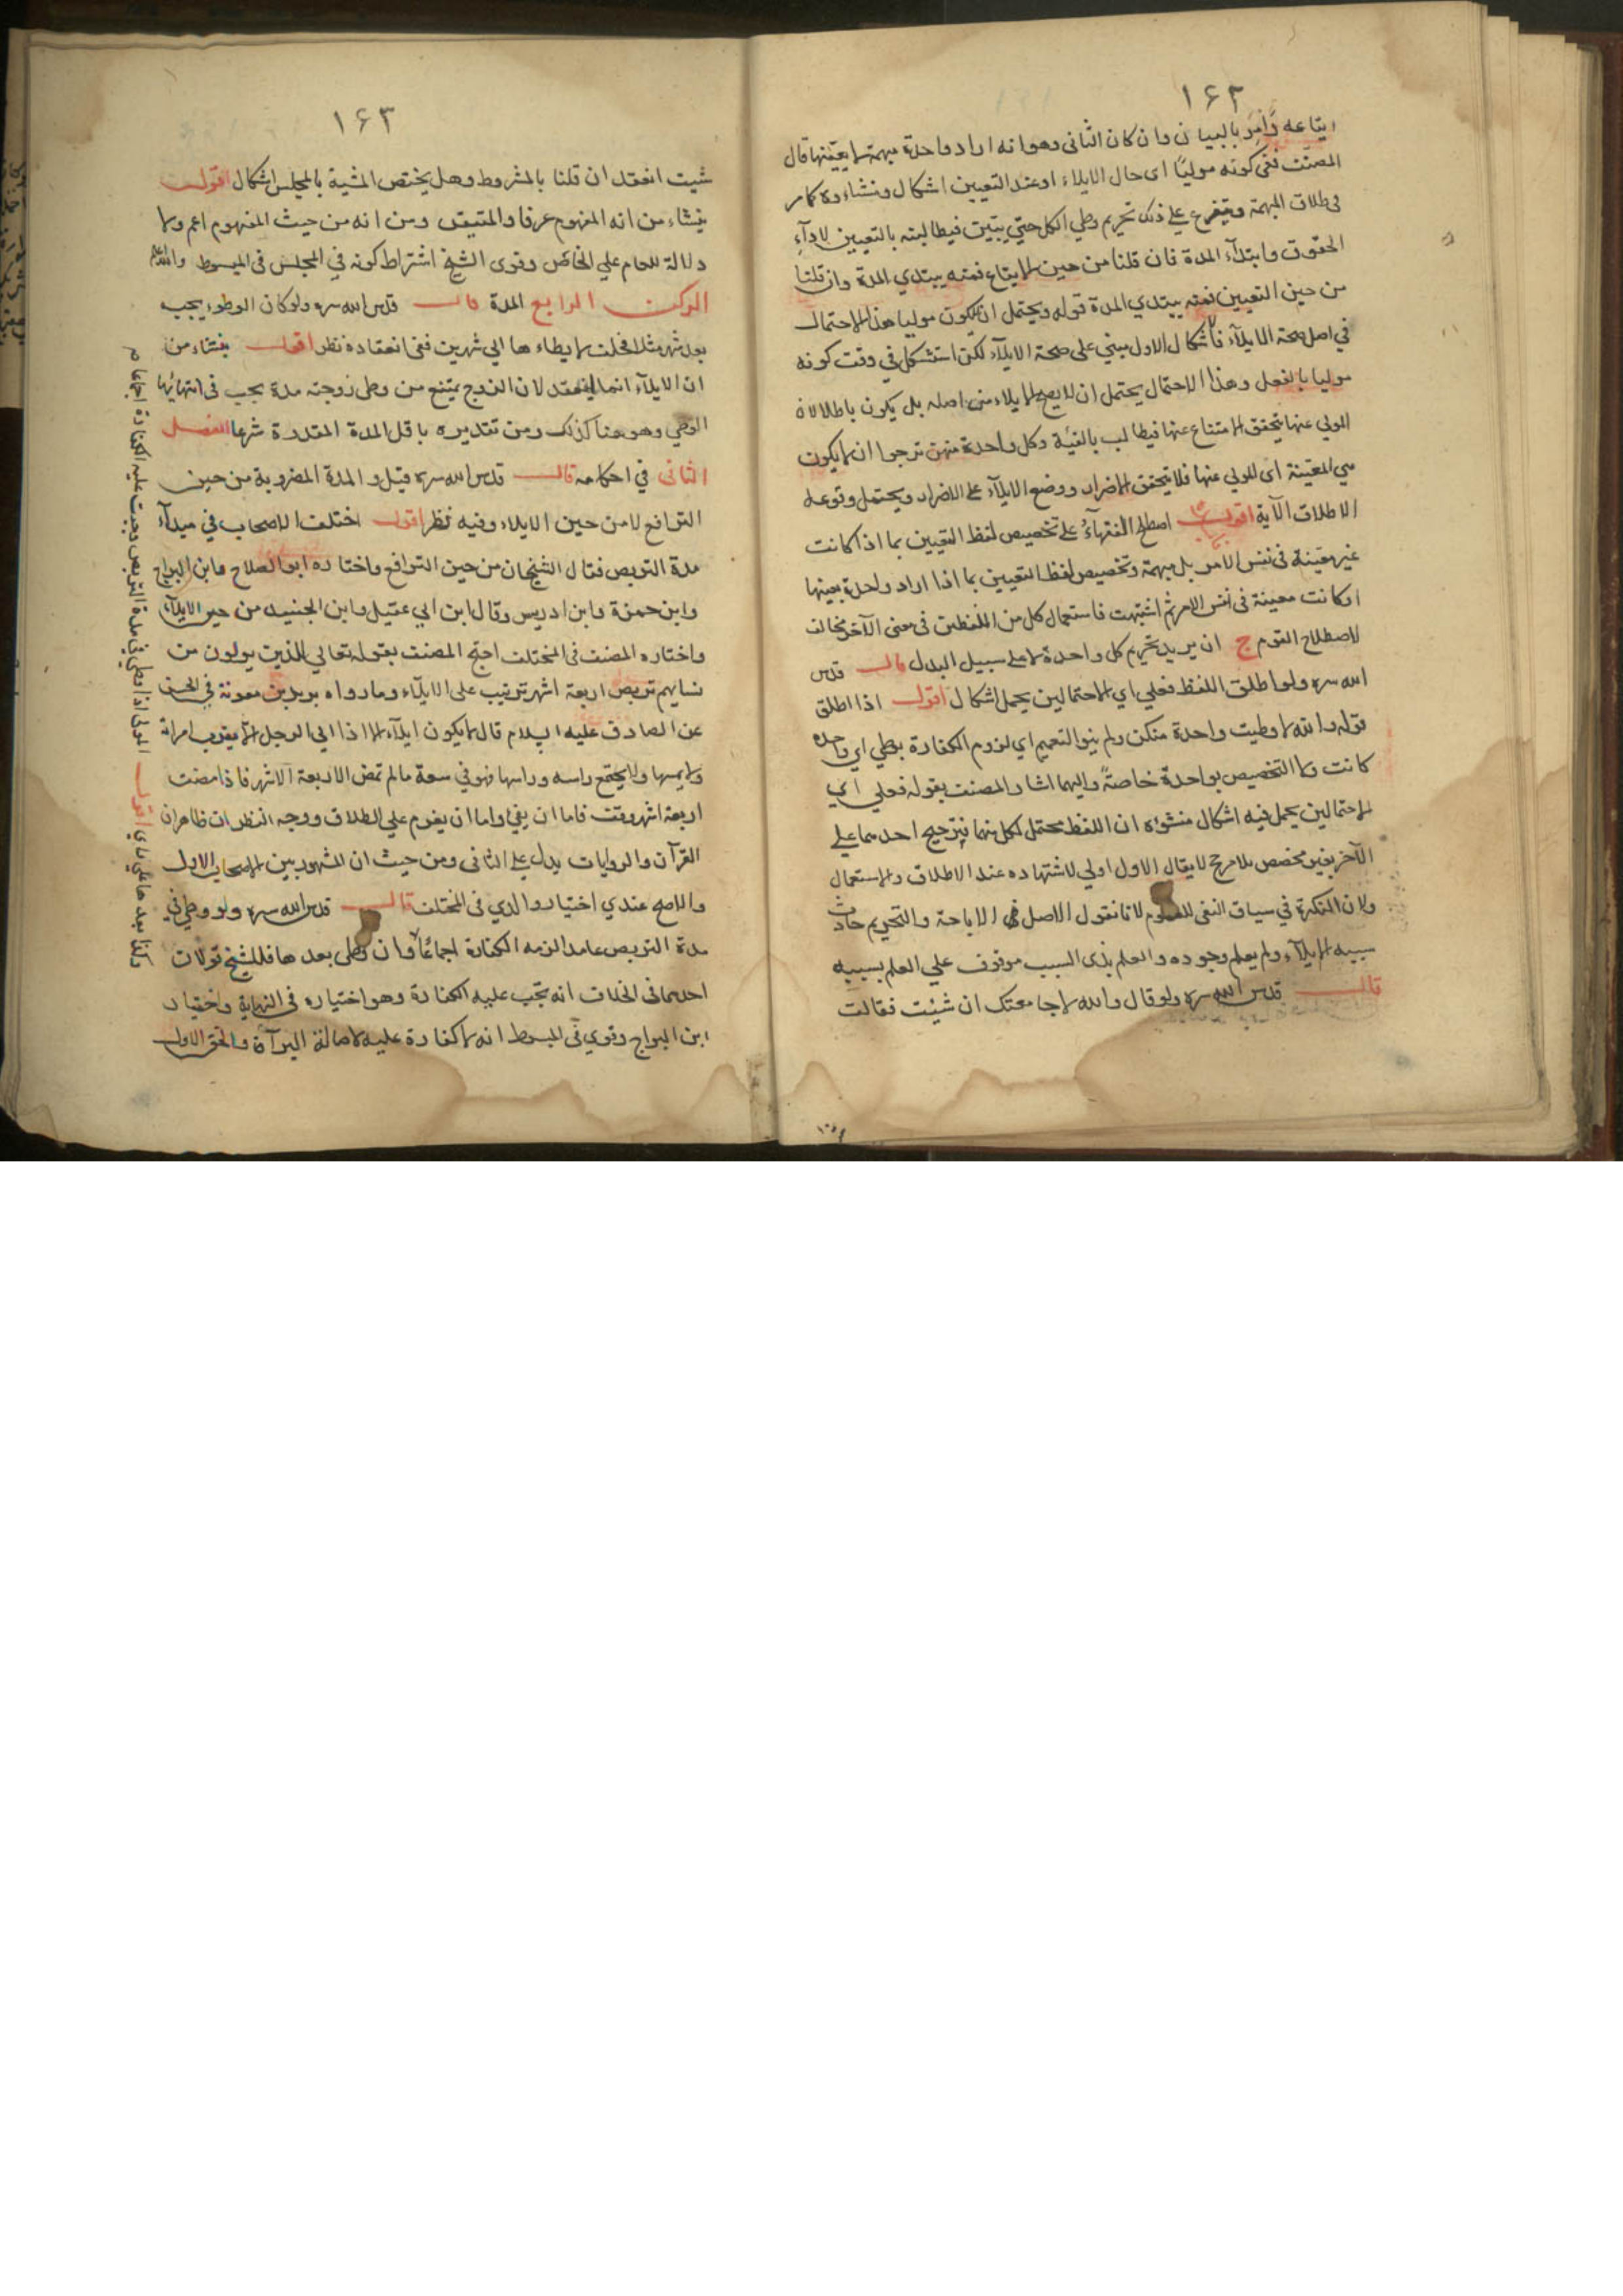 ١۶٢
ايقاعه وامر بالبيان وان كان الثانى وهو انه اراد واحدة مبهمة لا يعيّنها قال
المصنّف ففى كونه موليًا اى حال الايلاء او عند التعيين اشكال ومنشاؤه كما مر
فى طلاق المبهمة ويتفرع على ذلك تحريم وطي الكل حتي يتبين فيطالبته بالتعيين لادآء
الحقوق وابتدآء المدة فان قلنا من حين الايقاع فمنه يبتدي المدة وان قلنا
من حين التعيين فمنه يبتدي المدة قوله ويحتمل ان يكون موليا هذا الاحتمال
في اصل صحة الايلآء فاشكال الاول مبني على صحة الايلآء لكن استشكل في وقت كونه
موليا بالفعل وهذا الاحتمال يحتمل ان لا يصح الايلاء من اصله بل يكون باطلا لان
المولي عنها يتحقق الامتناع عنها فيطالب بالفئة وكل واحدة منهن ترجوا ان لا يكون
هي المعيّنة اى المولي عنها فلا يتحقق الاضرار ووضع الايلآء على الاضرار ويحتمل وقوعه
لاطلاق الآية اقول اصطلح الفقهآء على تخصيص لفظ التعيين بما اذا كانت
غير معيّنة فى نفس الامر بل مبهمة وتخصيص لفظ التعيين بما اذا اراد واحدة بعينها
او كانت معينة فى نفس الامر ثم اشتبهت فاستعمال كل من اللفظين فى معنى الآخر مخالف
لاصطلاح القوم ج ان يريد تحريم كل واحدة لا على سبيل البدل قال قدس
الله سره ولو اطلق اللفظ فعلي اي الاحتمالين يحمل اشكال اقول اذا اطلق
قوله والله لا وطيت واحدة منكن ولم ينو التعميم اي لزوم الكفارة بوطي اي واحدة
كانت ولا التخصيص بواحدة خاصةً واليهما اشار المصنف بقوله فعلي اي
الاحتمالين يحمل فيه اشكال منشؤه ان اللفظ محتمل لكل منهما فترجيح احدهما على
الآخر بغير مخصص بلا مرجح لا يقال الاول اولي لاشتهاره عند الاطلاق والاستعمال
ولان النكرة في سياق النفى للعموم لانا نقول الاصل الاباحة والتحريم حادث
سببه الايلآء ولم يعلم وجوده والعلم بذى السبب موقوف علي العلم بسببه
قال قدس الله سره ولو قال والله لا جامعتك ان شيئت فقالت
١۶٣
شيت انعقد ان قلنا بالمشروط وهل يختص المشية بالمجلس اشكال اقول
ينشاء من انه المفهوم عرفا والمتيقن ومن انه من حيث المفهوم اعم ولا
دلالة للعام علي الخاص وقوى الشيخ اشتراط كونه في المجلس فى المبسوط والله اعلم
الركن الرابع المدة قال قدس الله سره ولو كان الوطوء يجب
بعد شهر مثلا فحلف لا يطاءها الي شهرين ففى انعقاده نظر اقول ينشاء من
ان الايلآء انما ينعقد لان الزوج يمتنع من وطى زوجته مدة يجب فى انتهائها
الوطي وهو هنا كذلك ومن تقديره باقل المدة المقدرة شرعا الفصل
الثانى في احكامه قال قدس الله سره قيل والمدة المضروبة من حين
الترافع لا من حين الايلاء وفيه نظر اقول اختلف الاصحاب في مبدآء
مدة التربص فقال الشيخان من حين الترافع واختاره ابو الصلاح وابن البراج
وابن حمزة وابن ادريس وقال ابن ابي عقيل وابن الجنيد من حين الايلآء
واختاره المصنف فى المختلف احتج المصنف بقوله تعالي للذين يولون من
نسايهم تربص اربعة اشهر ترتيب على الايلآء وما رواه بريد بن معوية في الحسن
عن الصادق عليه السلام قال لا يكون ايلآء الا اذا الي الرجل الا يقرب امراته
ولا يمسها ولا يجتمع راسه وراسها فهو في سعة ما لم تمض الاربعة الاشهر فاذا مضت
اربعة اشهر وقف فاما ان يفي واما ان يعزم علي الطلاق ووجه النظر ان ظاهر
القرآن والروايات يدل على الثانى ومن حيث ان المشهور بين الاصحاب الاول
والاصح عندي اختيار والدي فى المختلف قال قدس الله سره ولو وطي في
مدة التربص عامدا لزمه الكفارة اجماعًا وان وطى بعدها فللشيخ قولان
احدهما فى الخلاف انه تجب عليه الكفارة وهو اختياره فى النهاية واختيار
ابن البراج وقوي فى المبسوط انه لا كفارة عليه لاصالة البرآة والحق الاول
المولى اذا وطى في مدة التربص وجبت عليه الكفارة اجماعا